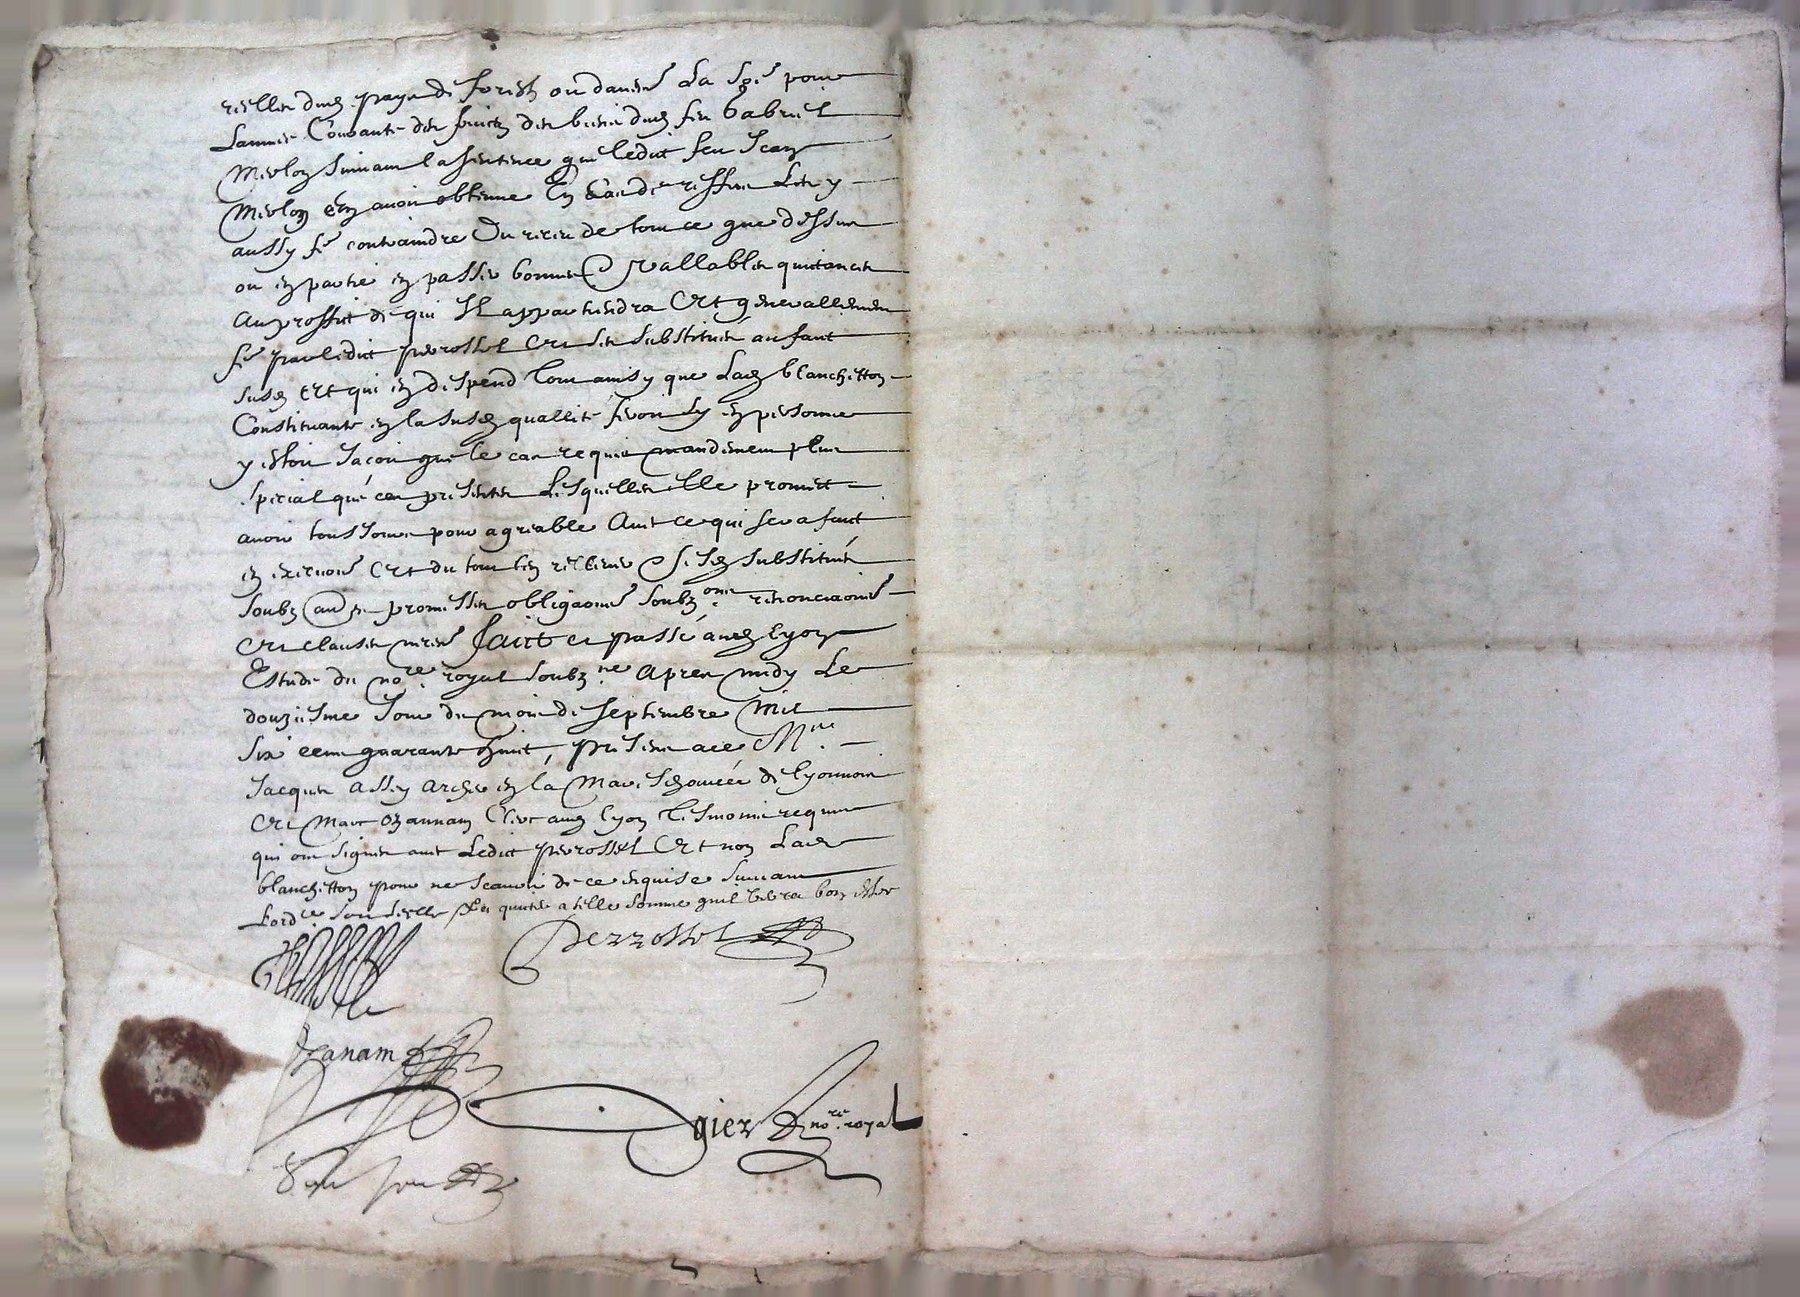 dud pays de forestz ou davers la
Lannee Courante des fruictz des biens dud feu Gabriel
Merloz suivant la sentence que ledict feu Jean
Merloz en avoir obtenue
aussy contraindre Du receu de tout ce que dessus
ou en partie en passer bonnes & vallables quictances
Au proffict de qui Il appartiendra Et generallement
par ledict Perrossel Et ses substitués au faict
susd Et qui en despend tout ainsy que Lad blanchetton
Constituante en la susd quallité feroit sy en personne
y estoit Jacoit que le cas requis mandement plus
special que ces presentes Lesquelles elle promect
avoir tousjours pour agreable Avec ce qui sera faict
en Et du tout les relever & sesd substitués
soubz promesses obligaons soubzons renonciaons
Et clauses Faict et passé aud Lyon
Estude du nore royal soubzne apres midy Le
douziesme Jour du mois de septembre Mil
six cent quarante huict, presens Me
Jacques assey archer en la Mareschaucée de lyonnois
Et Marc ozannam clerc aud Lyon tesmoins requis
qui ont signer avec Ledict Perrossel Et non Lad
blanchetton pour ne scavoir de ce enquise suivant
Lordce quicter a telle somme quil verra bon estre
Perrossel
Ozanam
gier nore royal